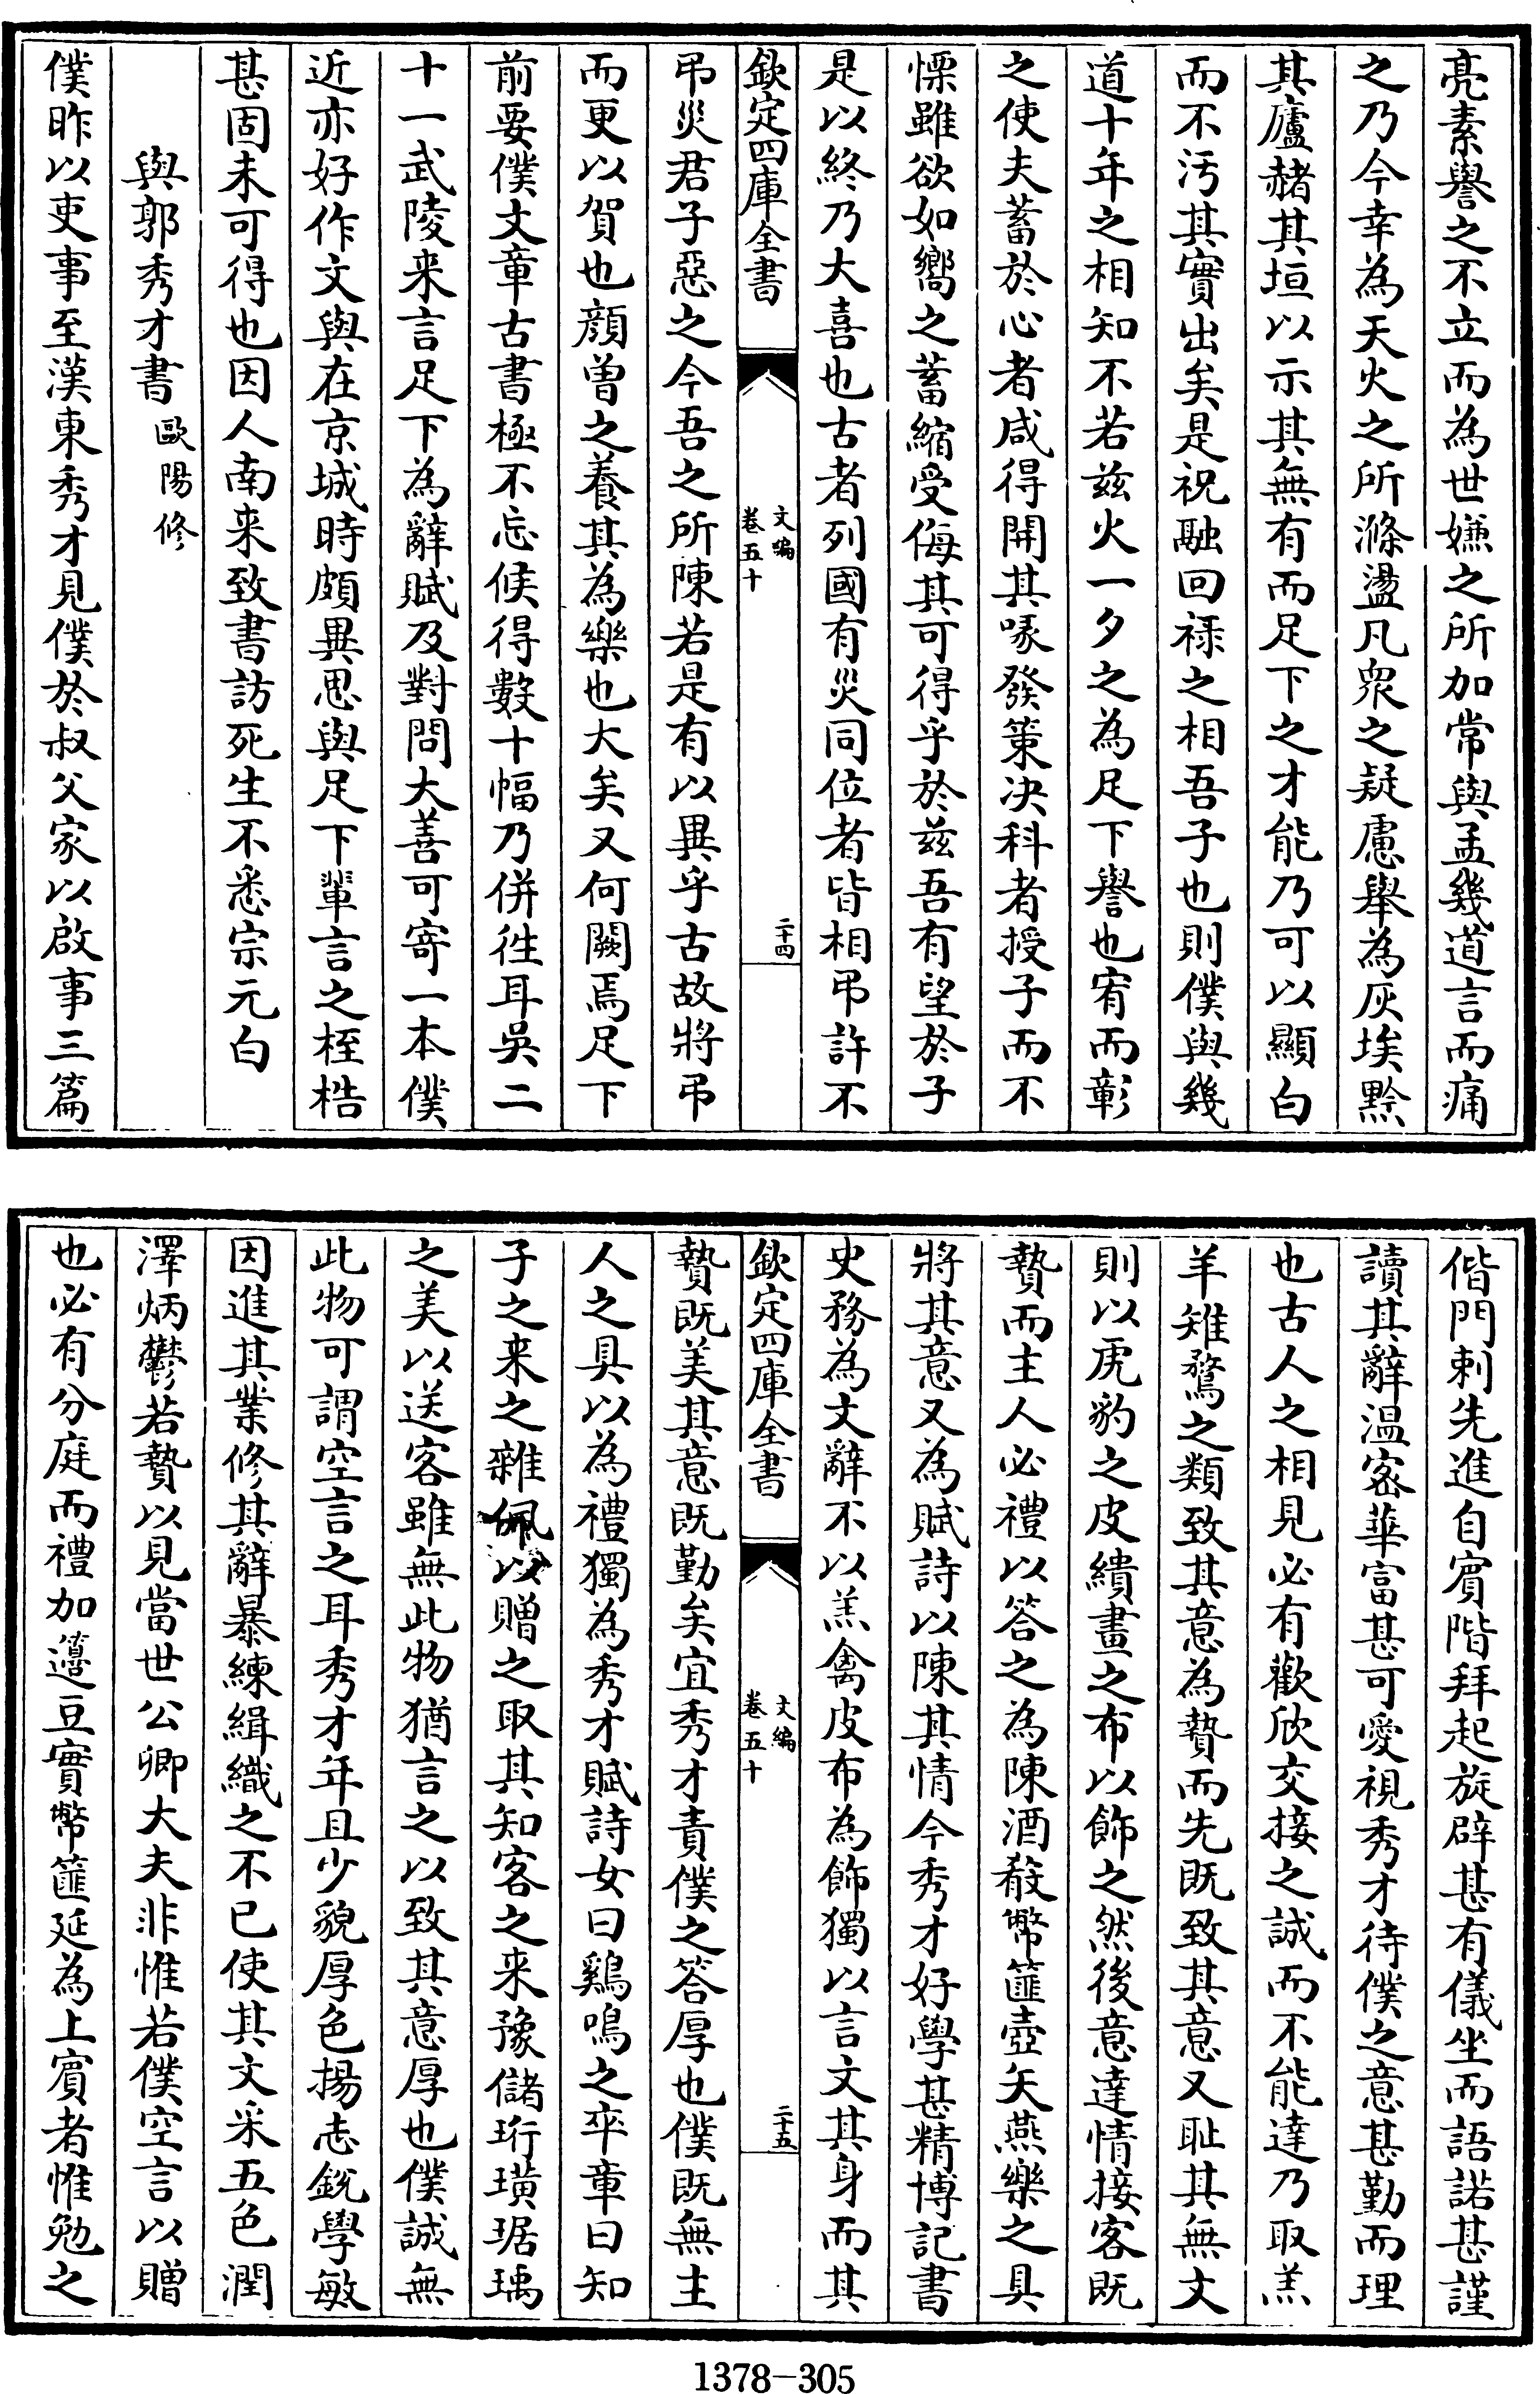 亮素譽之不立而為世嫌之所加常與孟幾道言而痛
之乃今幸為天火之所滌盪凡眾之疑慮舉為灰埃黔
其廬赭其垣以示其無有而足下之才能乃可以顯白
而不汚其實出矣是祝融回祿之相吾子也則僕與幾
道十年之相知不若茲火一夕之為足下譽也宥而彰
之使夫蓄於心者咸得開其喙發策決科者授子而不
慄雖欲如嚮之蓄縮受侮其可得乎於茲吾有望於子
是以終乃大喜也古者列國有災同位者皆相弔許不
欽定四庫全書
文編
卷五十
二十四
弔災君子惡之今吾之所陳若是有以異乎古故將弔
而更以賀也顏曾之養其為樂也大矣又何闕焉足下
前要僕文章古書極不忘候得數十幅乃併往耳吳二
十一武陵来言足下為辭賦及對問大善可寄一本僕
近亦好作文與在京城時頗異思與足下輩言之桎梏
甚固未可得也因人南来致書訪死生不悉宗元白
與郭秀才書
歐陽修
僕昨以吏事至漢東秀才見僕於叔父家以啟事三篇
偕門刺先進自賓階拜起旋辟甚有儀坐而語諾甚謹
讀其辭溫密華富甚可愛視秀才待僕之意甚勤而理
也古人之相見必有歡欣交接之誠而不能達乃取羔
羊雉鶩之類致其意為贄而先既致其意又恥其無文
則以虎豹之皮繢畫之布以飾之然後意達情接客既
贄而主人必禮以答之為陳酒殽幣篚壺矢燕樂之具
將其意又為賦詩以陳其情今秀才好學甚精博記書
史務為文辭不以羔禽皮布為飾獨以言文其身而其
欽定四庫全書
文編
卷五十
二十五
贄既美其意既勤矣宜秀才責僕之答厚也僕既無主
人之具以為禮獨為秀才賦詩女曰鷄鳴之卒章曰知
子之来之雜佩以贈之取其知客之来豫儲珩璜琚瑀
之美以送客雖無此物猶言之以致其意厚也僕誠無
此物可謂空言之耳秀才年且少貌厚色揚志銳學敏
因進其業修其辭暴練緝織之不已使其文采五色潤
澤炳鬱若贄以見當世公卿大夫非惟若僕空言以贈
也必有分庭而禮加籩豆實幣篚延為上賓者惟勉之
1378-305